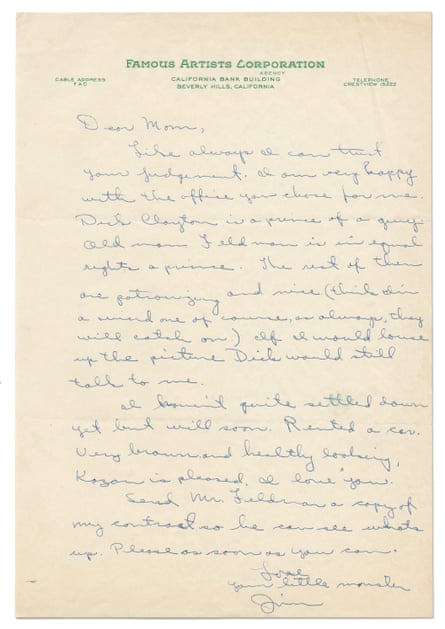 FAMOUS ARTISTS CORPORATION
AGENCY
CABLE ADDRESS
FAC
CALIFORNIA BANK BUILDING
BEVERLY HILLS, CALIFORNIA
TELEPHONE
CRESTVIEW 15222
Dear Mom,
Like always I can trust
your judgement. I am very happy
with the office you chose for me.
Dick Clayton is a prince of a guy.
Old man Feldman is in equal
rights a prince. The rest of them
are patronizing and nice (think I'm
a weird one of course, as always, they
will catch on.) If I would louse
up the picture Dick would still
talk to me.
I haven't quite settled down
yet but will soon. Rented a car.
Very brown and healthy looking,
Kazan is pleased. I love you.
Send Mr. Feldman a copy of
my contract so he can see whats
up. Please as soon as you can.
Love
your little monster
Jim